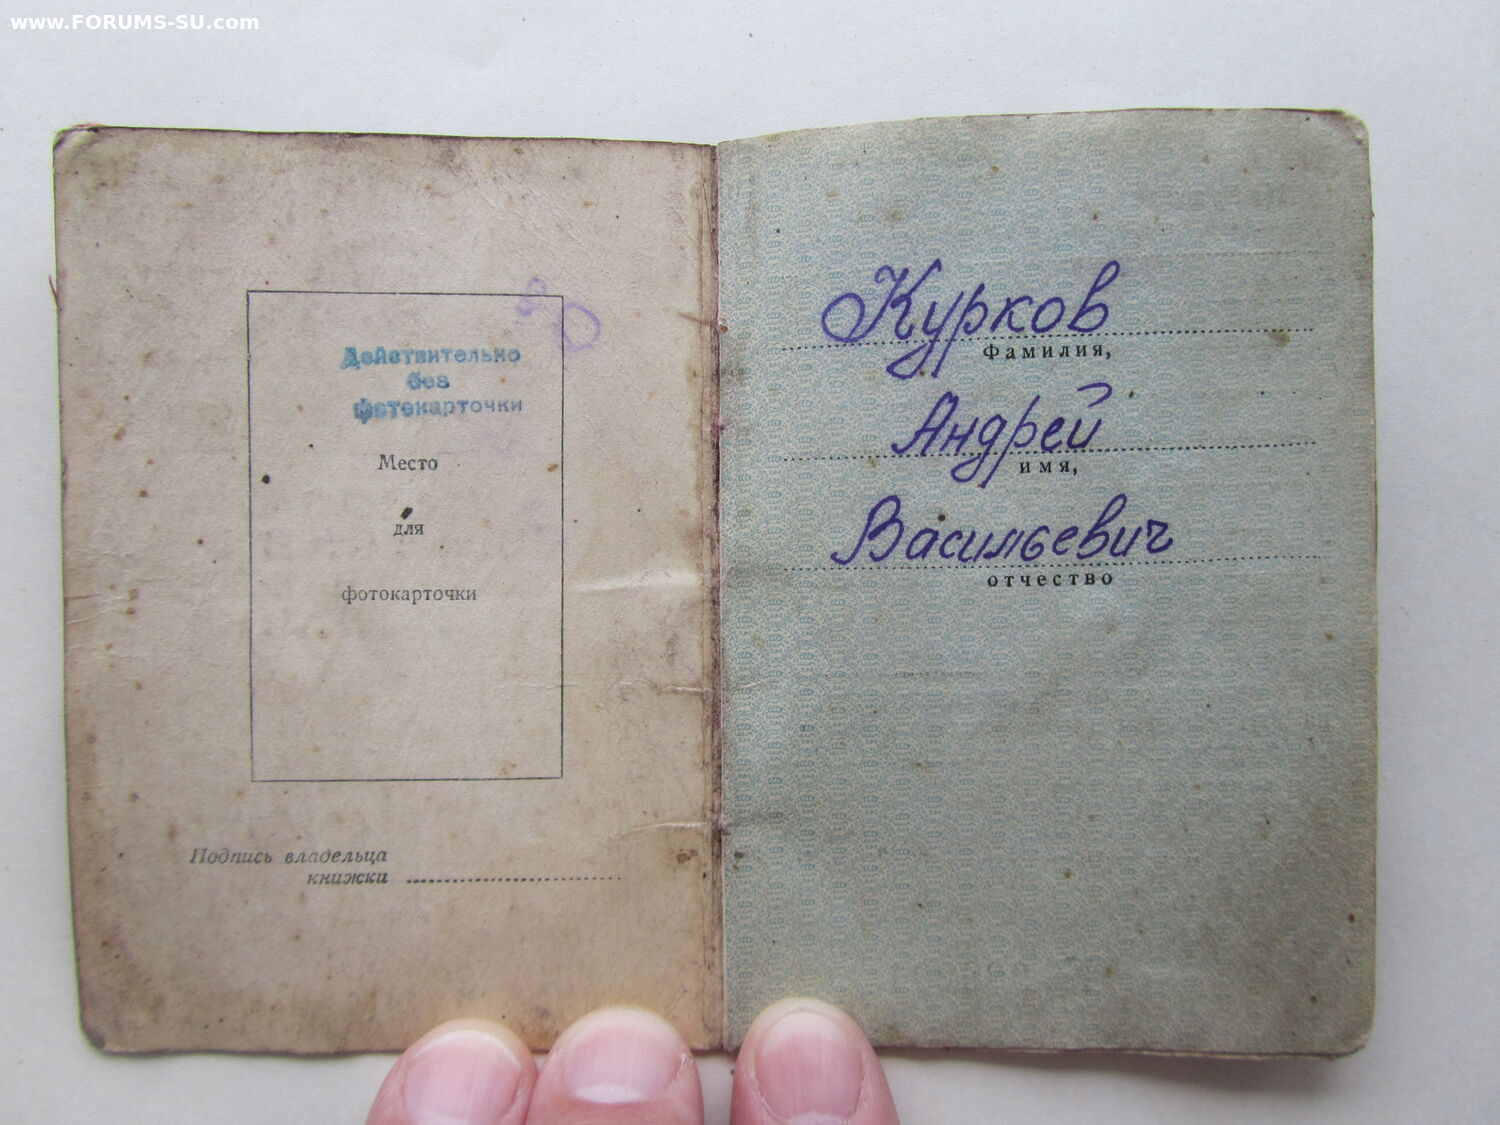 www.FORUMS-SU.com
Действительно
без
фотокарточки
Место
для
фотокарточки
Подпись владельца
книжки
Курков
Фамилия,
Андрей
имя,
Васильевич
отчество